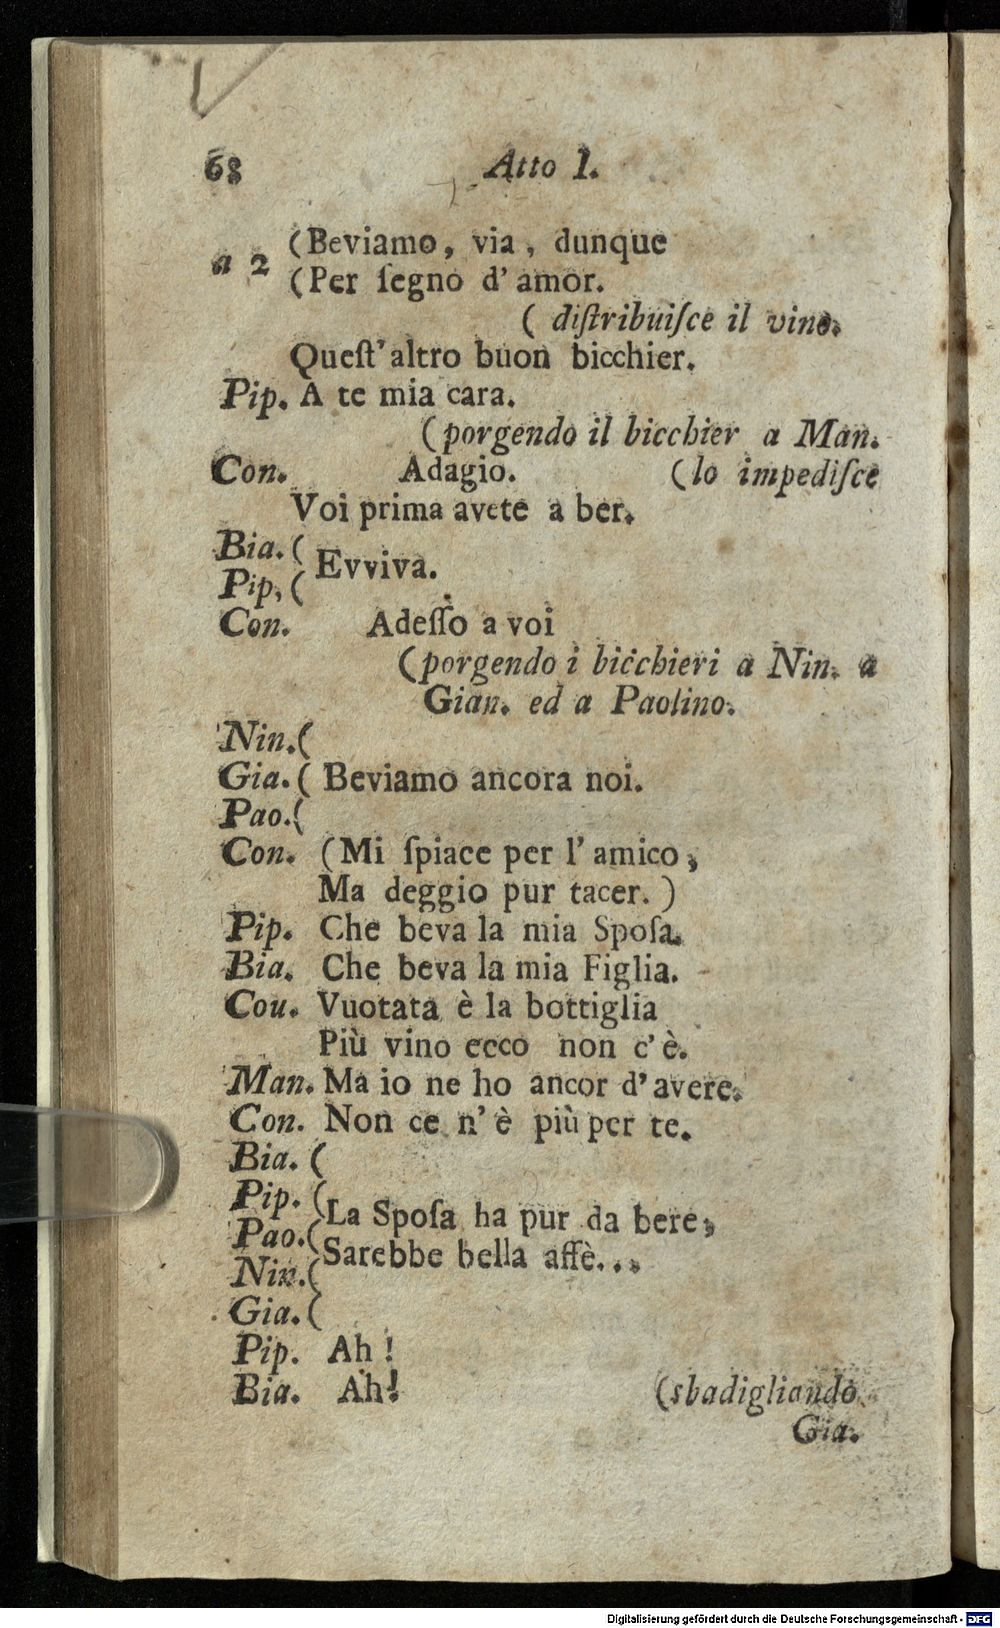 68 Atto I.
(Beviamo, via, dunque
a 2
(Per ſegno d' amor.
( diſtribuiſce il vino.
Queſt' altro buon bicchier.
Pip. A te mia cara.
(porgendo il bicchier a Man.
Con. Adagio. (lo impediſce
Voi prima avete a ber.
Bia. (
Evviva.
Pip, (
Con. Adeſſo a voi
(porgendo i bicchieri a Nin. a
Gian. ed a Paolino.
Nin. (
Gia. ( Beviamo ancora noi.
Pao. (
Con. (Mi ſpiace per l' amico,
Ma deggio pur tacer. )
Pip. Che beva la mia Spoſa.
Bia. Che beva la mia Figlia.
Cou. Vuotata è la bottiglia
Più vino ecco non c' è.
Man. Ma io ne ho ancor d' avere.
Con. Non ce n' è più per te.
Bia. (
Pip. (
La Spoſa ha pur da bere,
Pao. (
Sarebbe bella affè...
Nin. (
Gia. (
Pip. Ah !
Bia. Ah! (sbadigliando
Gia.
Digitalisierung gefördert durch die Deutsche Forschungsgemeinschaft - DFG